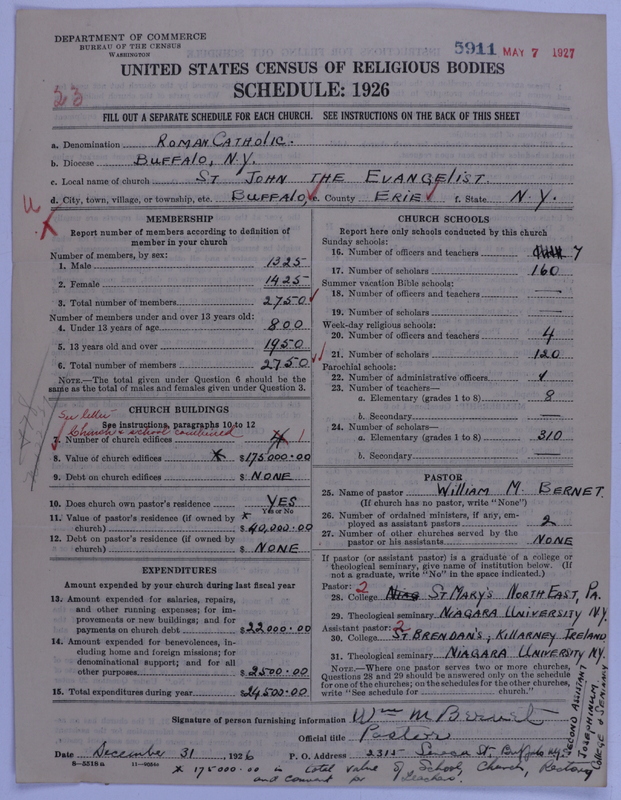 DEPARTMENT OF COMMERCE
BUREAU OF THE CENSUS
WASHINGTON
5911 MAY 7 1927
UNITED STATES CENSUS OF RELIGIOUS BODIES
SCHEDULE: 1926
23
FILL OUT A SEPARATE SCHEDULE FOR EACH CHURCH. SEE INSTRUCTIONS ON THE BACK OF THIS SHEET
a. Denomination ROMAN CATHOLIC.
b. Diocese BUFFALO, N.Y.
c. Local name of church ST JOHN THE EVANGELIST.
d. City, town, village, or township, etc. BUFFALO, e. County ERIE f. State N.Y.
MEMBERSHIP
Report number of members according to definition of
member in your church
Number of members, by sex:
1. Male 1325
2. Female 1425
3. Total number of members 2750
Number of members under and over 13 years old:
4. Under 13 years of age 800
5. 13 years old and over 1950
6. Total number of members 2750
NOTE.—The total given under Question 6 should be the
same as the total of males and females given under Question 3.
CHURCH BUILDINGS
See letter
See instructions, paragraphs 10 to 12
Church & school combined
7. Number of church edifices 1
8. Value of church edifices * $175000.00
9. Debt on church edifices $ NONE
10. Does church own pastor's residence YES
Yes or No
11. Value of pastor's residence (if owned by
church) * $40,000.00
12. Debt on pastor's residence (if owned by
church) $ NONE
EXPENDITURES
Amount expended by your church during last fiscal year
13. Amount expended for salaries, repairs,
and other running expenses; for im-
provements or new buildings; and for
payments on church debt $22000.00
14. Amount expended for benevolences, in-
cluding home and foreign missions; for
denominational support; and for all
other purposes $2500.00
15. Total expenditures during year $24500.00
CHURCH SCHOOLS
Report here only schools conducted by this church
Sunday schools:
16. Number of officers and teachers 7
17. Number of scholars 160
Summer vacation Bible schools:
18. Number of officers and teachers —
19. Number of scholars —
Week-day religious schools:
20. Number of officers and teachers 4
21. Number of scholars 120
Parochial schools:
22. Number of administrative officers
23. Number of teachers—
a. Elementary (grades 1 to 8) 8
b. Secondary —
24. Number of scholars—
a. Elementary (grades 1 to 8) 310
b. Secondary —
PASTOR
25. Name of pastor WILLIAM M. BERNET.
(If church has no pastor, write "None")
26. Number of ordained ministers, if any, em-
ployed as assistant pastors 2
27. Number of other churches served by the
pastor or his assistants NONE
If pastor (or assistant pastor) is a graduate of a college or
theological seminary, give name of institution below. (If
not a graduate, write "No" in the space indicated.)
Pastor: 2
28. College NIAG ST MARY'S NORTH EAST, PA.
29. Theological seminary NIAGARA UNIVERSITY N.Y.
Assistant pastor: 2
30. College ST BRENDAN'S, KILLARNEY IRELAND
31. Theological seminary NIAGARA UNIVERSITY N.Y.
NOTE.—Where one pastor serves two or more churches,
Questions 28 and 29 should be answered only on the schedule
for one of the churches; on the schedules for the other churches,
write "See schedule for church."
SECOND ASSISTANT
COLLEGE & SEMINARY
Signature of person furnishing information Wm M Bernet
Official title Pastor
Date December 31, 1926 P. O. Address 2315 Seneca St Buffalo N.Y.
8—5518a 11—9034a
* 175000.00 is total value of School, Church, Rectory
and convent for Teachers.